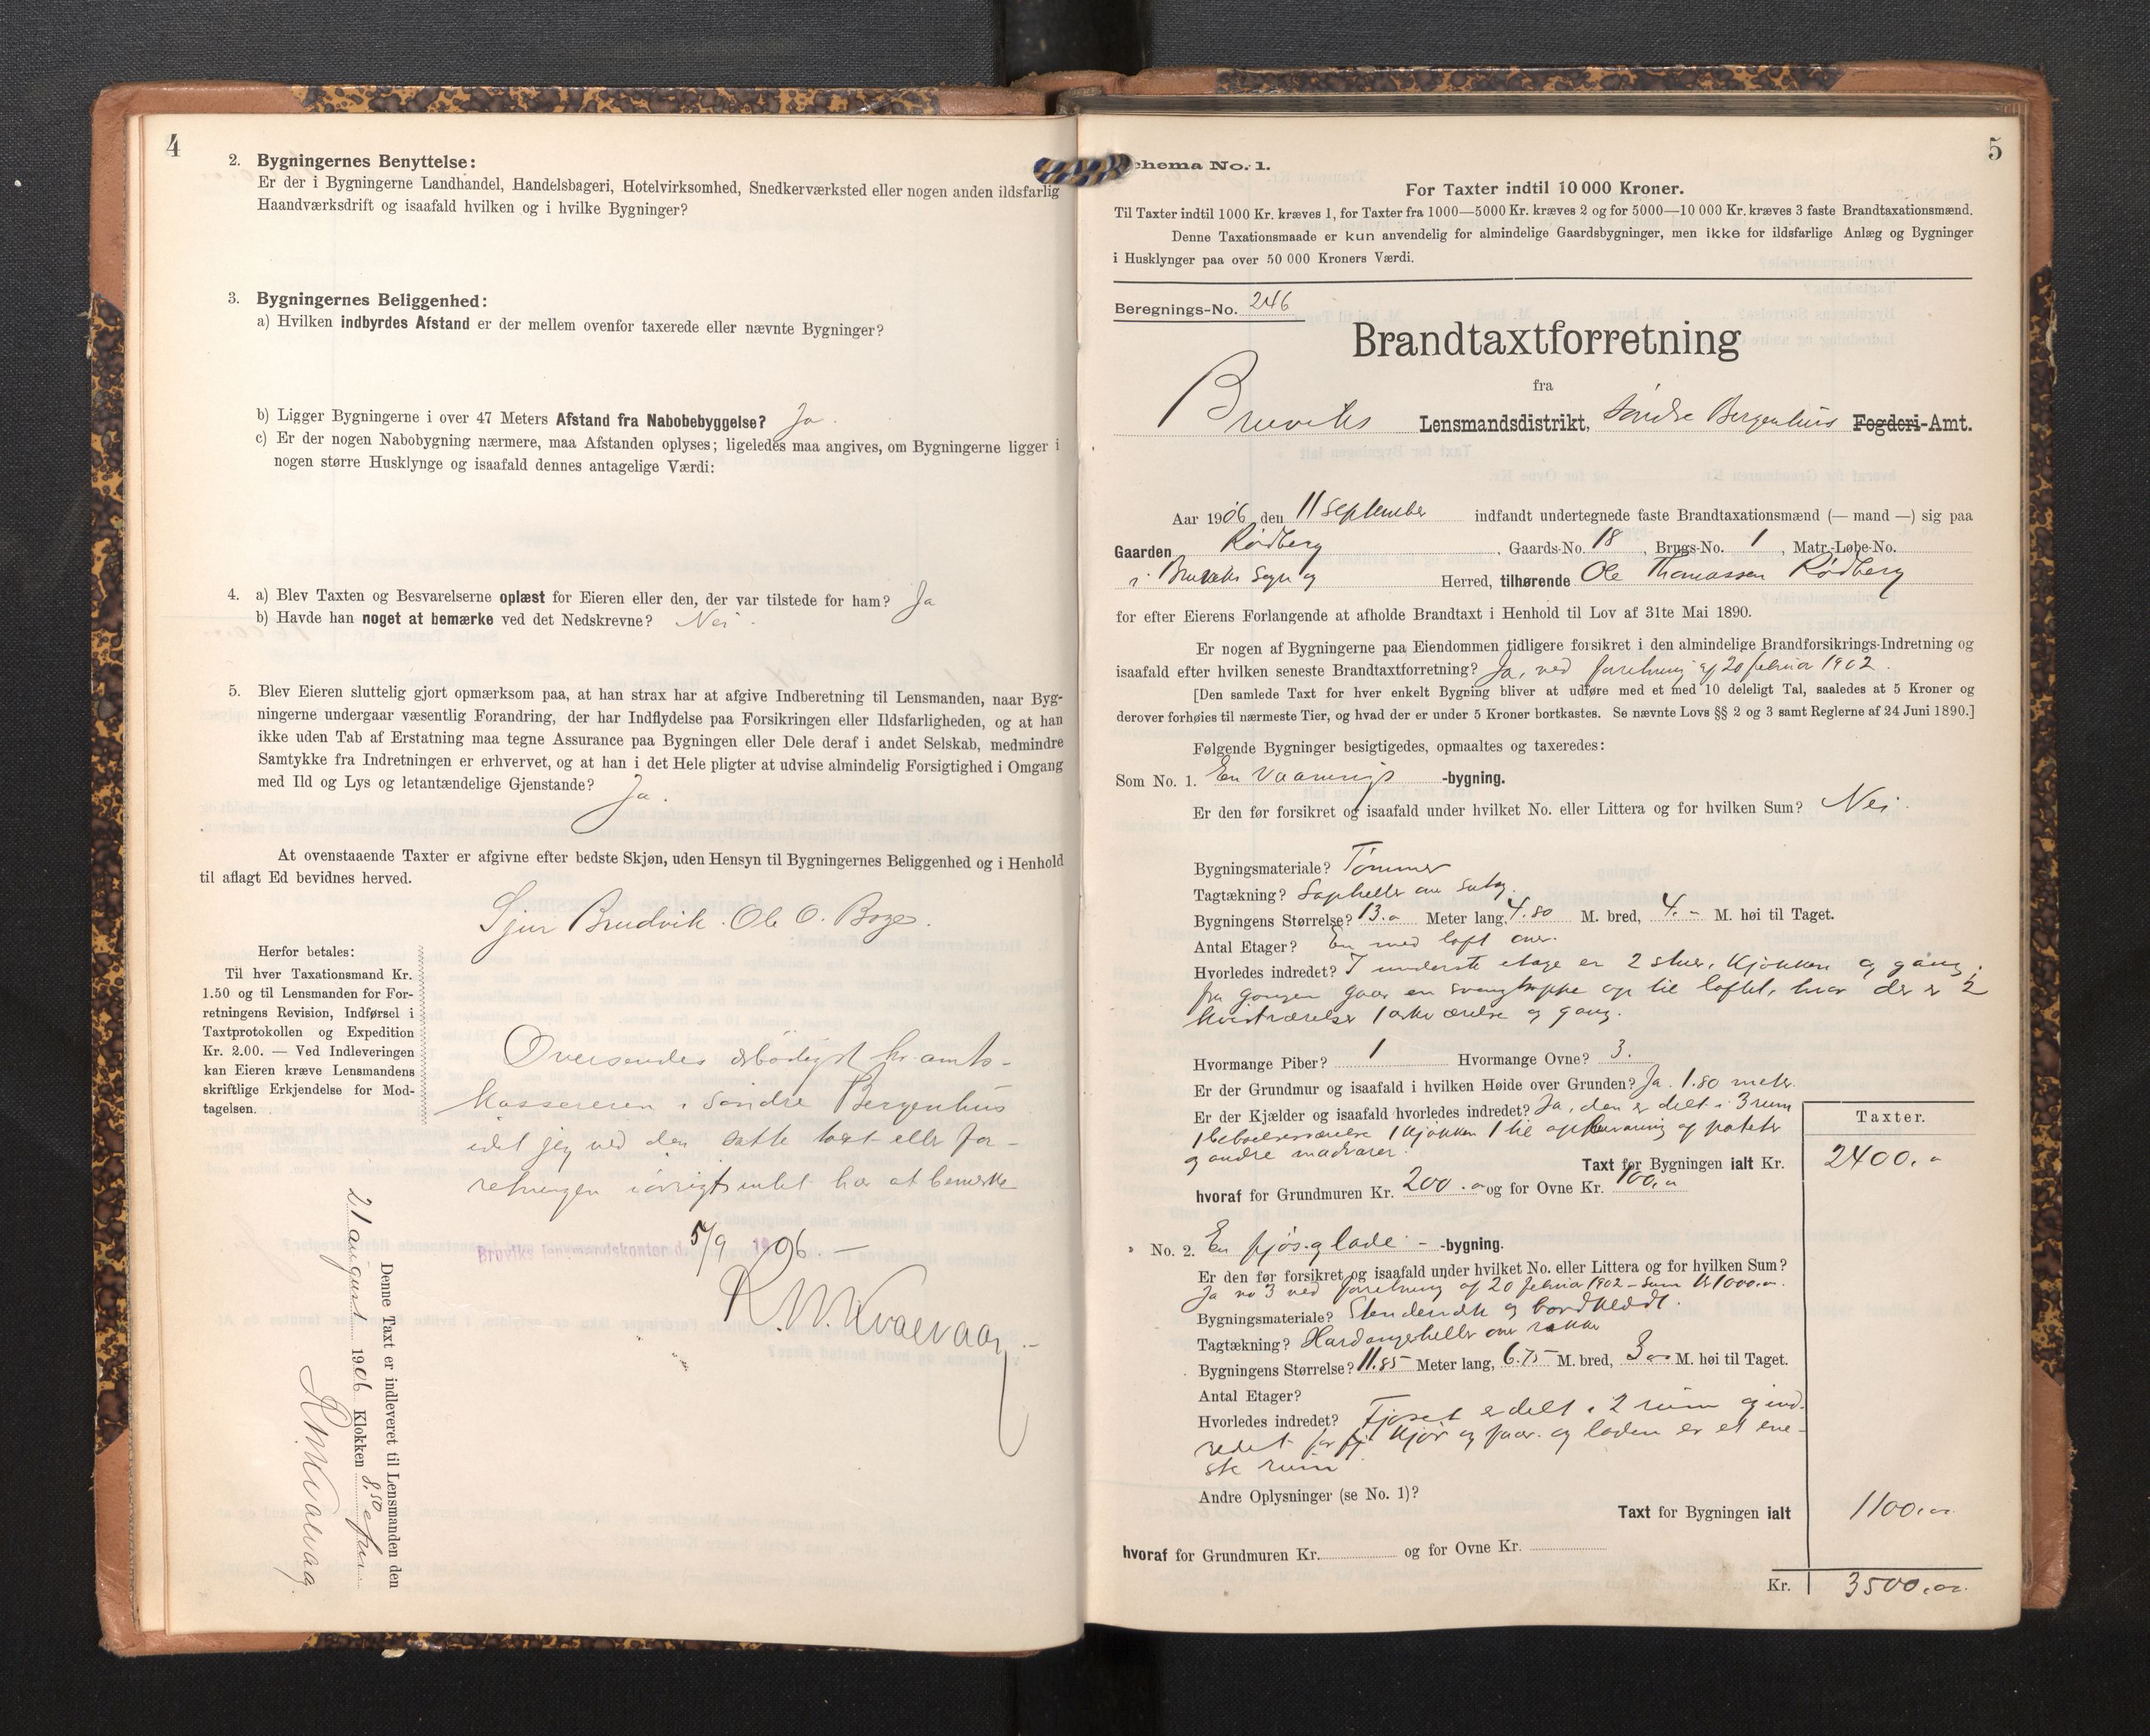 4
2. Bygningernes Benyttelse:
Er der i Bygningerne Landhandel, Handelsbageri, Hotelvirksomhed, Snedkerværksted eller nogen anden ildsfarlig
Haandværksdrift og isaafald hvilken og i hvilke Bygninger?
3. Bygningernes Beliggenhed:
a) Hvilken indbyrdes Afstand er der mellem ovenfor taxerede eller nævnte Bygninger?
b) Ligger Bygningerne i over 47 Meters Afstand fra Nabobebyggelse? Ja.
c) Er der nogen Nabobygning nærmere, maa Afstanden oplyses; ligeledes maa angives, om Bygningerne ligger i
nogen større Husklynge og isaafald dennes antagelige Værdi:
4. a) Blev Taxten og Besvarelserne oplæst for Eieren eller den, der var tilstede for ham? Ja
b) Havde han noget at bemærke ved det Nedskrevne? Nei.
5. Blev Eieren sluttelig gjort opmærksom paa, at han strax har at afgive Indberetning til Lensmanden, naar Byg-
ningerne undergaar væsentlig Forandring, der har Indflydelse paa Forsikringen eller Ildsfarligheden, og at han
ikke uden Tab af Erstatning maa tegne Assurance paa Bygningen eller Dele deraf i andet Selskab, medmindre
Samtykke fra Indretningen er erhvervet, og at han i det Hele pligter at udvise almindelig Forsigtighed i Omgang
med Ild og Lys og letantændelige Gjenstande? Ja.
At ovenstaaende Taxter er afgivne efter bedste Skjøn, uden Hensyn til Bygningernes Beliggenhed og i Henhold
til aflagt Ed bevidnes herved.
Sjur Brudvik. Ole O. Boge.
Herfor betales:
Til hver Taxationsmand Kr.
1.50 og til Lensmanden for For-
retningens Revision, Indførsel i
Taxtprotokollen og Expedition
Kr. 2.00. — Ved Indleveringen
kan Eieren kræve Lensmandens
skriftlige Erkjendelse for Mod-
tagelsen.
Oversendes ærbødigst hr. amts-
kassereren i Søndre Bergenhus
idet jeg ved den satte taxt eller for-
retningen iøvrigt intet har at bemerke
Bruviks lensmandskontor d. 5/9 1906. —
R. M. Kvaevaag
Denne Taxt er indleveret til Lensmanden den
21 august 1906 Klokken 8.50
R. M. Kvaevaag
5
chema No. 1.
For Taxter indtil 10 000 Kroner.
Til Taxter indtil 1000 Kr. kræves 1, for Taxter fra 1000—5000 Kr. kræves 2 og for 5000—10 000 Kr. kræves 3 faste Brandtaxationsmænd.
Denne Taxationsmaade er kun anvendelig for almindelige Gaardsbygninger, men ikke for ildsfarlige Anlæg og Bygninger
i Husklynger paa over 50 000 Kroners Værdi.
Beregnings-No. 246
Brandtaxtforretning
fra
Bruviks Lensmandsdistrikt, Søndre Bergenhus Fogderi-Amt.
Aar 1906 den 11 september indfandt undertegnede faste Brandtaxationsmænd (— mand —) sig paa
Gaarden Rødberg, Gaards-No. 18, Brugs-No. 1, Matr.-Løbe-No.
i Bruviks Sogn og Herred, tilhørende Ole Thomassen Rødberg
for efter Eierens Forlangende at afholde Brandtaxt i Henhold til Lov af 31te Mai 1890.
Er nogen af Bygningerne paa Eiendommen tidligere forsikret i den almindelige Brandforsikrings-Indretning og
isaafald efter hvilken seneste Brandtaxtforretning? Ja, ved forretning af 20 februar 1902.
[Den samlede Taxt for hver enkelt Bygning bliver at udføre med et med 10 deleligt Tal, saaledes at 5 Kroner og
derover forhøies til nærmeste Tier, og hvad der er under 5 Kroner bortkastes. Se nævnte Lovs §§ 2 og 3 samt Reglerne af 24 Juni 1890.]
Følgende Bygninger besigtigedes, opmaaltes og taxeredes:
Som No. 1. En Vaanings -bygning.
Er den før forsikret og isaafald under hvilket No. eller Littera og for hvilken Sum? Nei.
Bygningsmateriale? Tømmer
Tagtækning? over sutag.
Bygningens Størrelse? 13.- Meter lang, 4.80 M. bred, 4.- M. høi til Taget.
Antal Etager? En med loft over.
Hvorledes indredet? I underste etage er 2 stuer, kjøkken og gang;
fra gangen gaar en svingtrappe op til loftet, hvor der er 2
kvistværelser 1 værelse og gang.
Hvormange Piber? 1 Hvormange Ovne? 3.
Er der Grundmur og isaafald i hvilken Høide over Grunden? Ja. 1.80 meter.
Er der Kjælder og isaafald hvorledes indredet? Ja, den er delt i 3 rum
1 beboelsesværelse 1 kjøkken 1 til opbevaring af poteter
og andre madvarer.
Taxter.
Taxt for Bygningen ialt Kr. 2400.-
hvoraf for Grundmuren Kr. 200.- og for Ovne Kr. 100.-
No. 2. En fjøs og lade- -bygning.
Er den før forsikret og isaafald under hvilket No. eller Littera og for hvilken Sum?
Ja no 3 ved forretning af 20 februar 1902 - sum kr 1000.-
Bygningsmateriale? Stenderværk og bordklædt.
Tagtækning? Hardangerheller over
Bygningens Størrelse? 11.85 Meter lang, 6.75 M. bred, 3.- M. høi til Taget.
Antal Etager?
Hvorledes indredet? Fjøset er delt i 2 rum og ind-
redet for kjør og faar. og laden er et ene-
ste rum
Andre Oplysninger (se No. 1)?
Taxt for Bygningen ialt 1100.-
hvoraf for Grundmuren Kr. og for Ovne Kr.
Kr. 3500.-